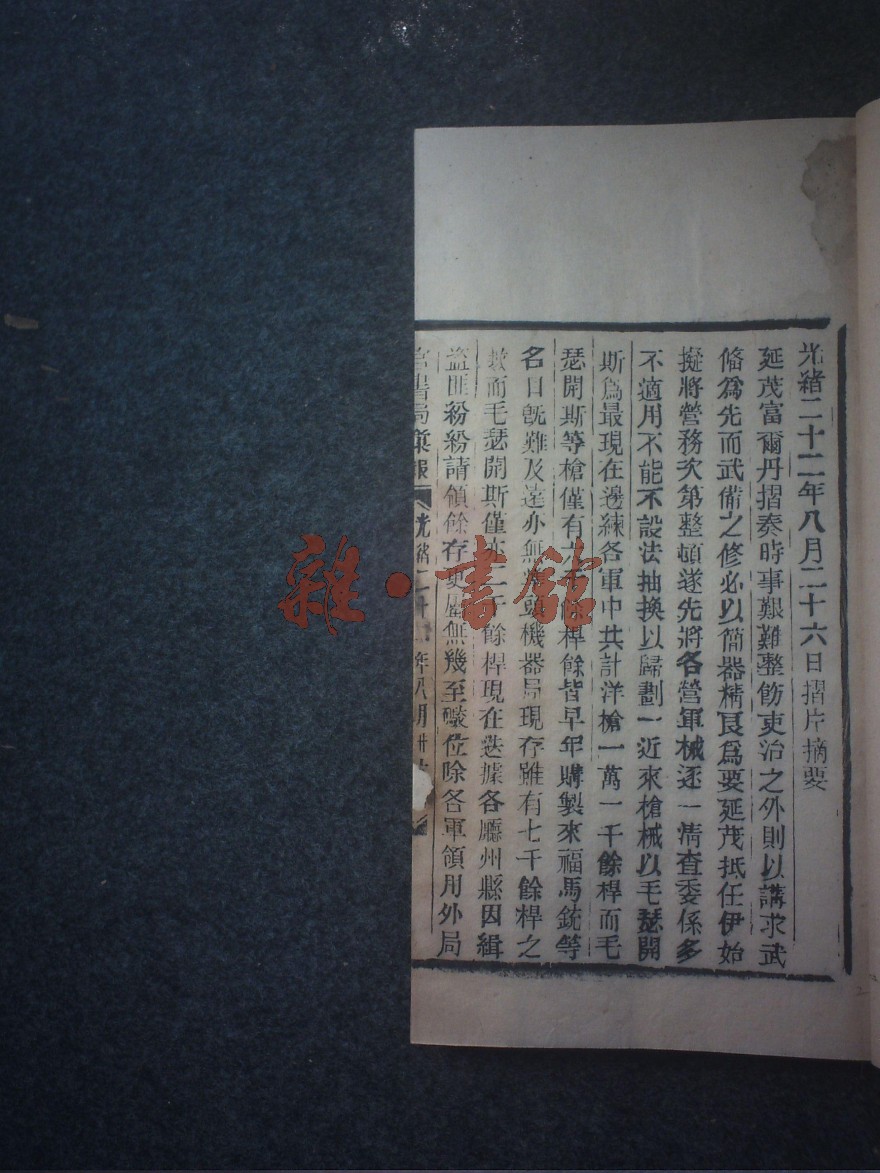 光緒二十二年八月二十六日摺片摘要
延茂富爾丹摺奏時事艱難整飭吏治之外則以講求武
備爲先而武備之修必以簡器精良爲要延茂抵任伊始
擬將營務次第整頓遂先將各營軍械逐一清查委係多
不適用不能不設法抽換以歸劃一近來槍械以毛瑟開
斯爲最現在邊練各軍中共計洋槍一萬一千餘桿而毛
瑟開斯等槍僅有六千餘桿餘皆早年購製來福馬銃等
名目旣難及遠亦無準頭機器局現存雖有七千餘桿之
數而毛瑟開斯僅亦二千餘桿現在迭據各廳州縣因緝
盜匪紛紛請領餘存更屬無幾至礮位除各軍領用外局
官書局彙報 光緒二十 年八月
雜·書館